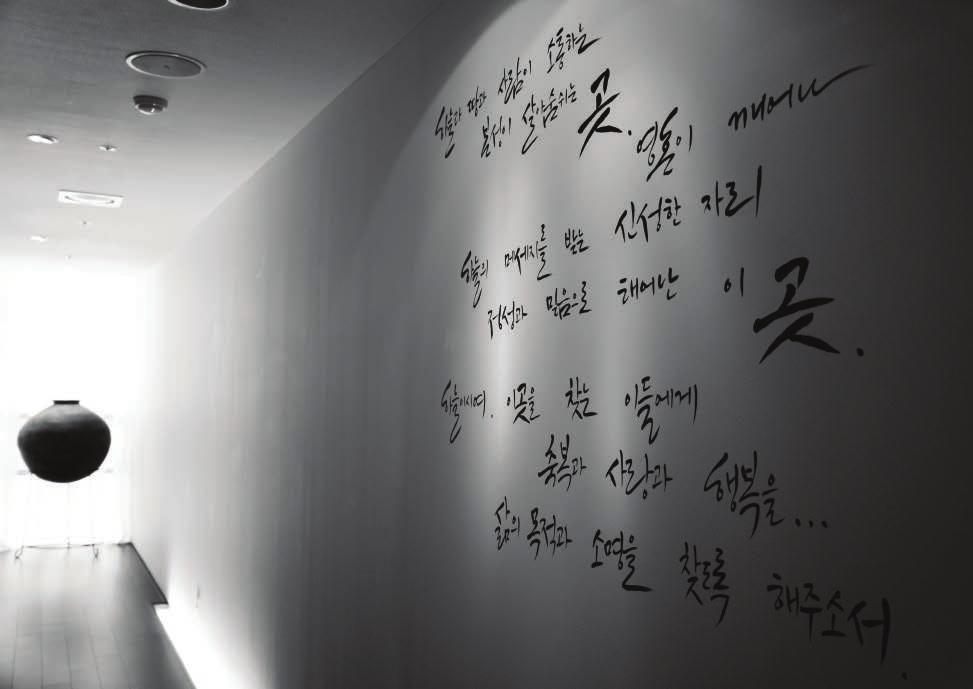 하늘과 땅과 사람이 소통하는
본성이 살아숨쉬는 곳.
영혼이 깨어나
하늘의 메세지를 받는 신성한 자리
정성과 믿음으로 태어난 이 곳.
하늘이시여. 이곳을 찾는 이들에게
축복과 사랑과 행복을...
삶의 목적과 소명을 찾도록 해주소서.